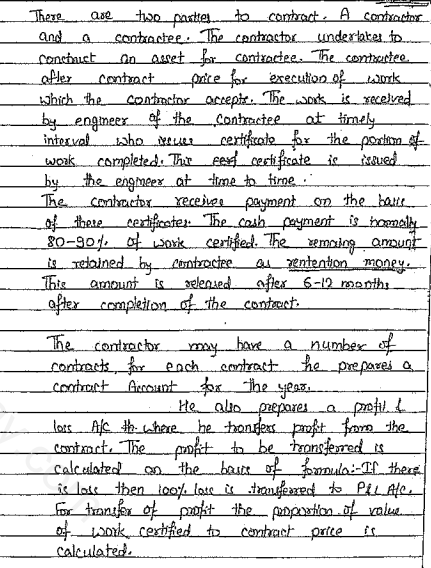 There are two parties to contract. A contractor
and a contractee. The contractor undertakes to
construct an asset for contractee. The contractee
after contract price for execution of work
which the contractor accepts. The work is received
by engineer of the contractee at timely
interval who issues certificate for the portion of
work completed. This certificate is issued
by the engineer at time to time.
The contractor receives payment on the basis
of these certificates. The cash payment is normally
80-90%. of work certified. The remaing amount
is retained by contractee as rentention money.
This amount is released after 6-12 months
after completion of the contract.
The contractor may have a number of
contracts, for each contract he prepares a
contract Account for the year.
He also prepares a profit &
loss A/c th. where he transfers profit from the
contract. The profit to be transferred is
calculated on the basis of formula:- If there
is loss then 100% loss is transferred to P&L A/c.
For transfer of profit the proportion of value
of work certified to contract price is
calculated.